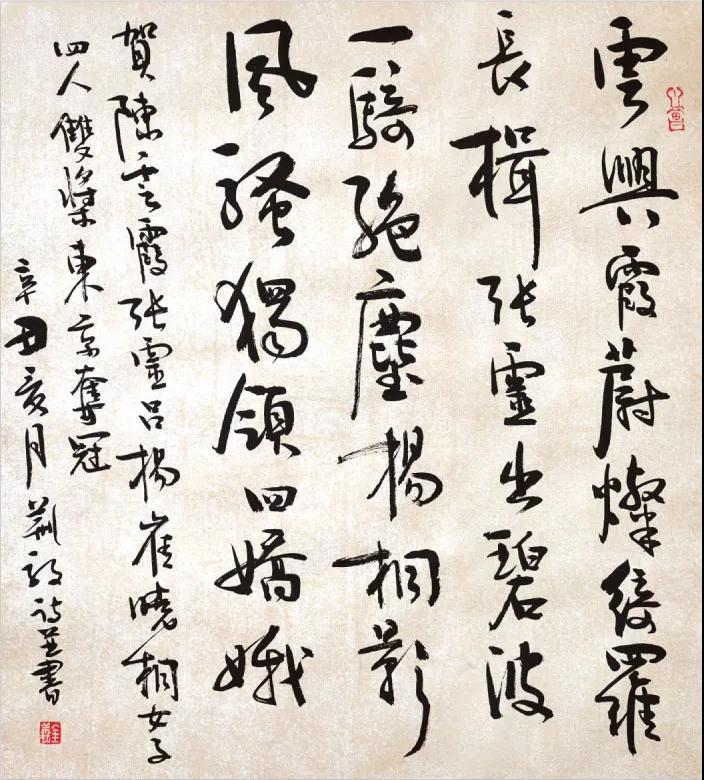 雲興霞蔚燦綾羅
長楫張靈出碧波
一騎絕塵楊桐影
風騷獨領四嬌娥
賀陳雲霞張靈呂楊崔曉桐女子
四人雙槳東京奪冠
辛丑亥月 荆 詩並書